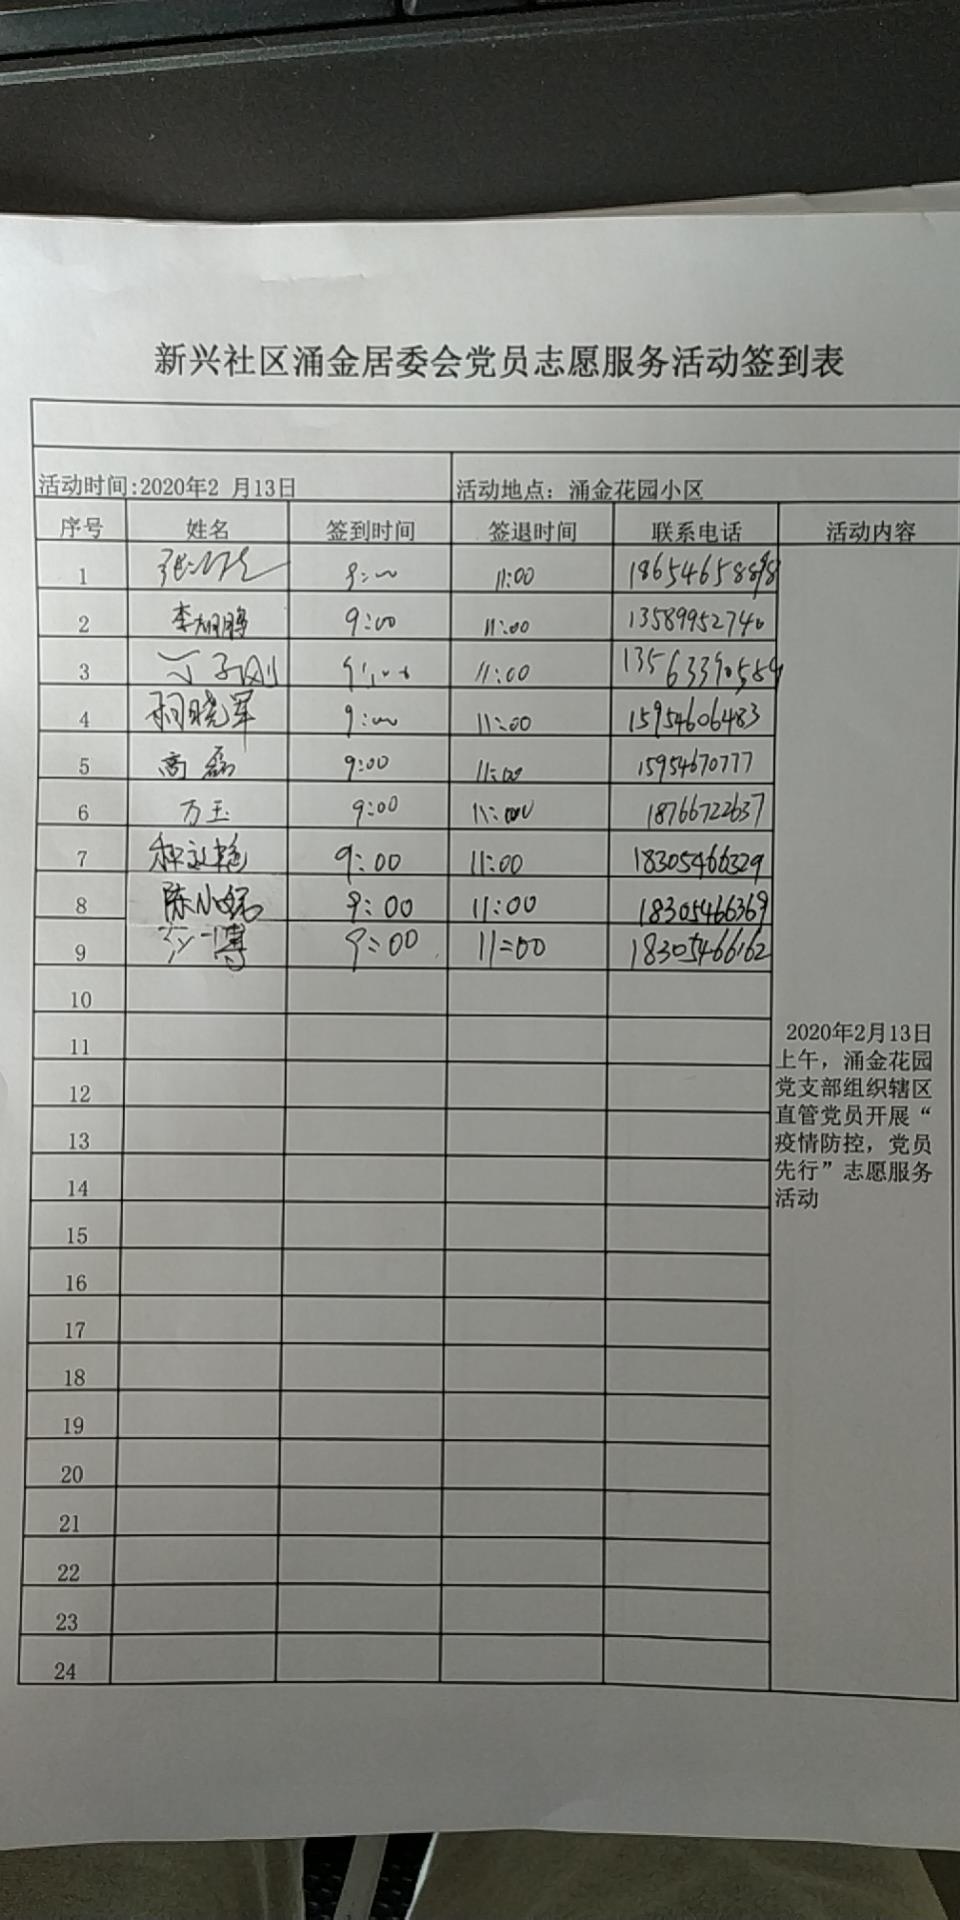 新兴社区涌金居委会党员志愿服务活动签到表
活动时间:2020年2 月13日 活动地点：涌金花园小区
序号 姓名 签到时间 签退时间 联系电话 活动内容
1 9:00 11:00
2 李旭鹏 9:00 11:00 13589952740
3 9:00 11:00 13563390589
4 晓军 9:00 11:00 15954606483
5 高磊 9:00 11:00 15954670777
6 万玉 9:00 11:00 18766722637
7 9:00 11:00 18305466329
8 陈小 9:00 11:00 18305466369
9 博 9:00 11:00 18305466162
10
11
12
13
14
15
16
17
18
19
20
21
22
23
24
2020年2月13日
上午，涌金花园
党支部组织辖区
直管党员开展“
疫情防控，党员
先行”志愿服务
活动